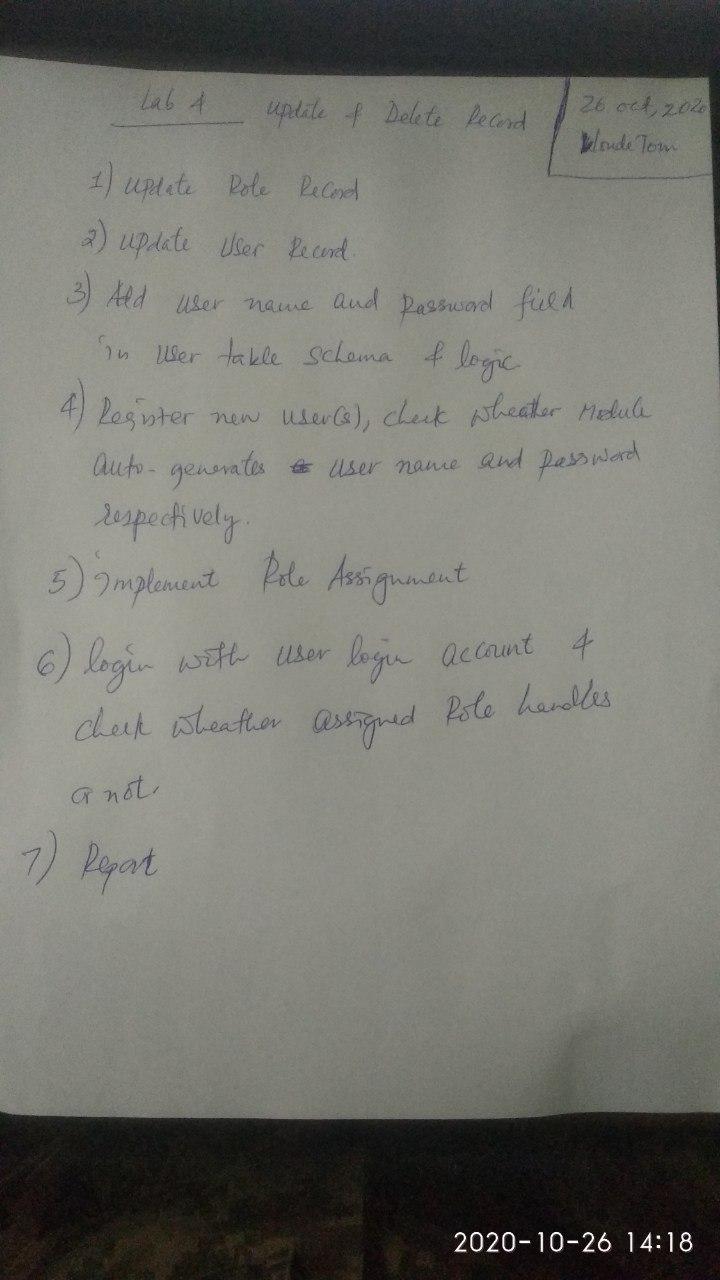 Lab 4 Update & Delete Record
26 oct, 2020
WondeTom
1) Update Role Record
2) Update User Record.
3) Add user name and password field
in User table schema & logic
4) Register new user(s), check wheather Module
auto-generates user name and password
respectively.
5) Implement Role Assignment
6) login with user login account &
check wheather assigned Role handles
or not.
7) Report
2020-10-26 14:18